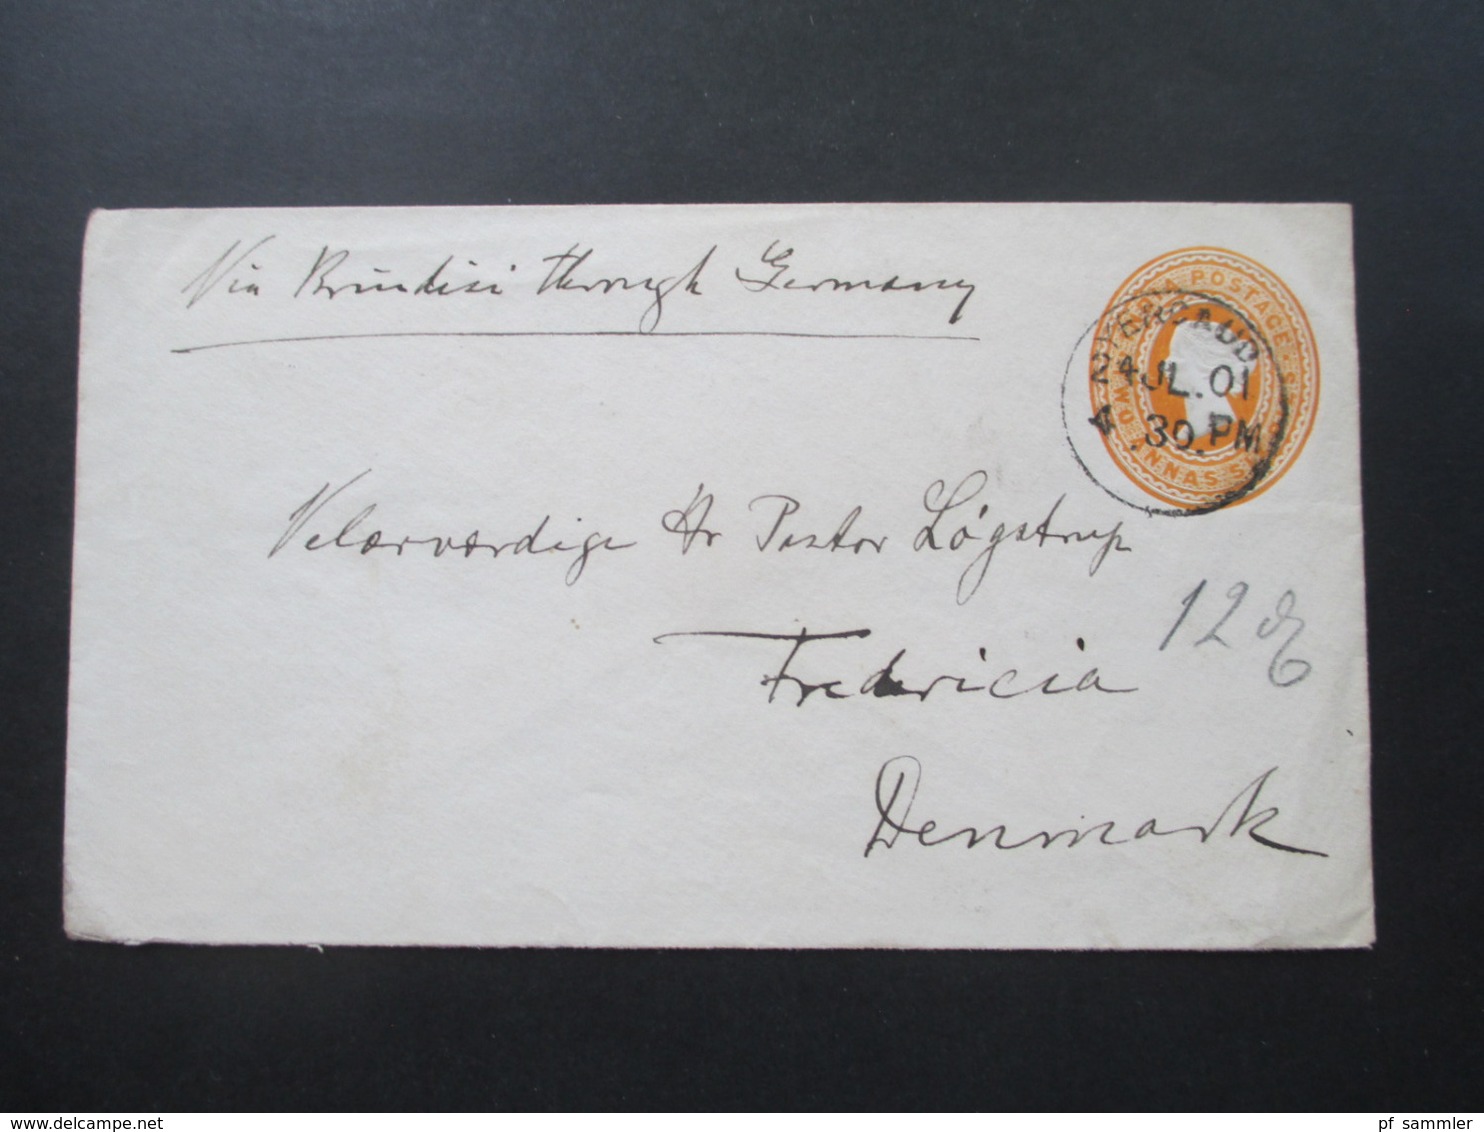 Via Brindisi through Germany
INDIA POSTAGE
TWO ANNAS SIX
4 JL. 01
4 .30. PM
Velærværdige Hr Pastor Løgstrup
12
Fredericia
Denmark
www.delcampe.net
pf_sammler